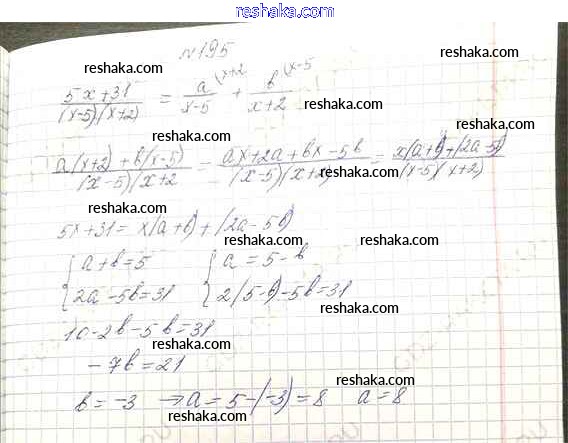 reshaka.com
№195
reshaka.com reshaka.com
(5x+31)/((x-5)(x+2)) = a\x+2/(x-5) + b\x-5/(x+2)
reshaka.com
reshaka.com reshaka.com
(a(x+2)+b(x-5))/((x-5)(x+2) = (ax+2a+bx-5b)/((x-5)(x+2)) = (x(a+b)+(2a-5b))/((x-5)(x+2))
reshaka.com
reshaka.com reshaka.com
5x+31=x(a+b)+(2a-5b)
reshaka.com
{ a+b=5 { a=5-b
reshaka.com reshaka.com
{ 2a-5b=31 { 2(5-b)-5b=31
reshaka.com
10-2b-5b=31
reshaka.com reshaka.com
-7b=21
reshaka.com
b=-3 → a=5-(-3)=8 a=8
reshaka.com reshaka.com
reshaka.com